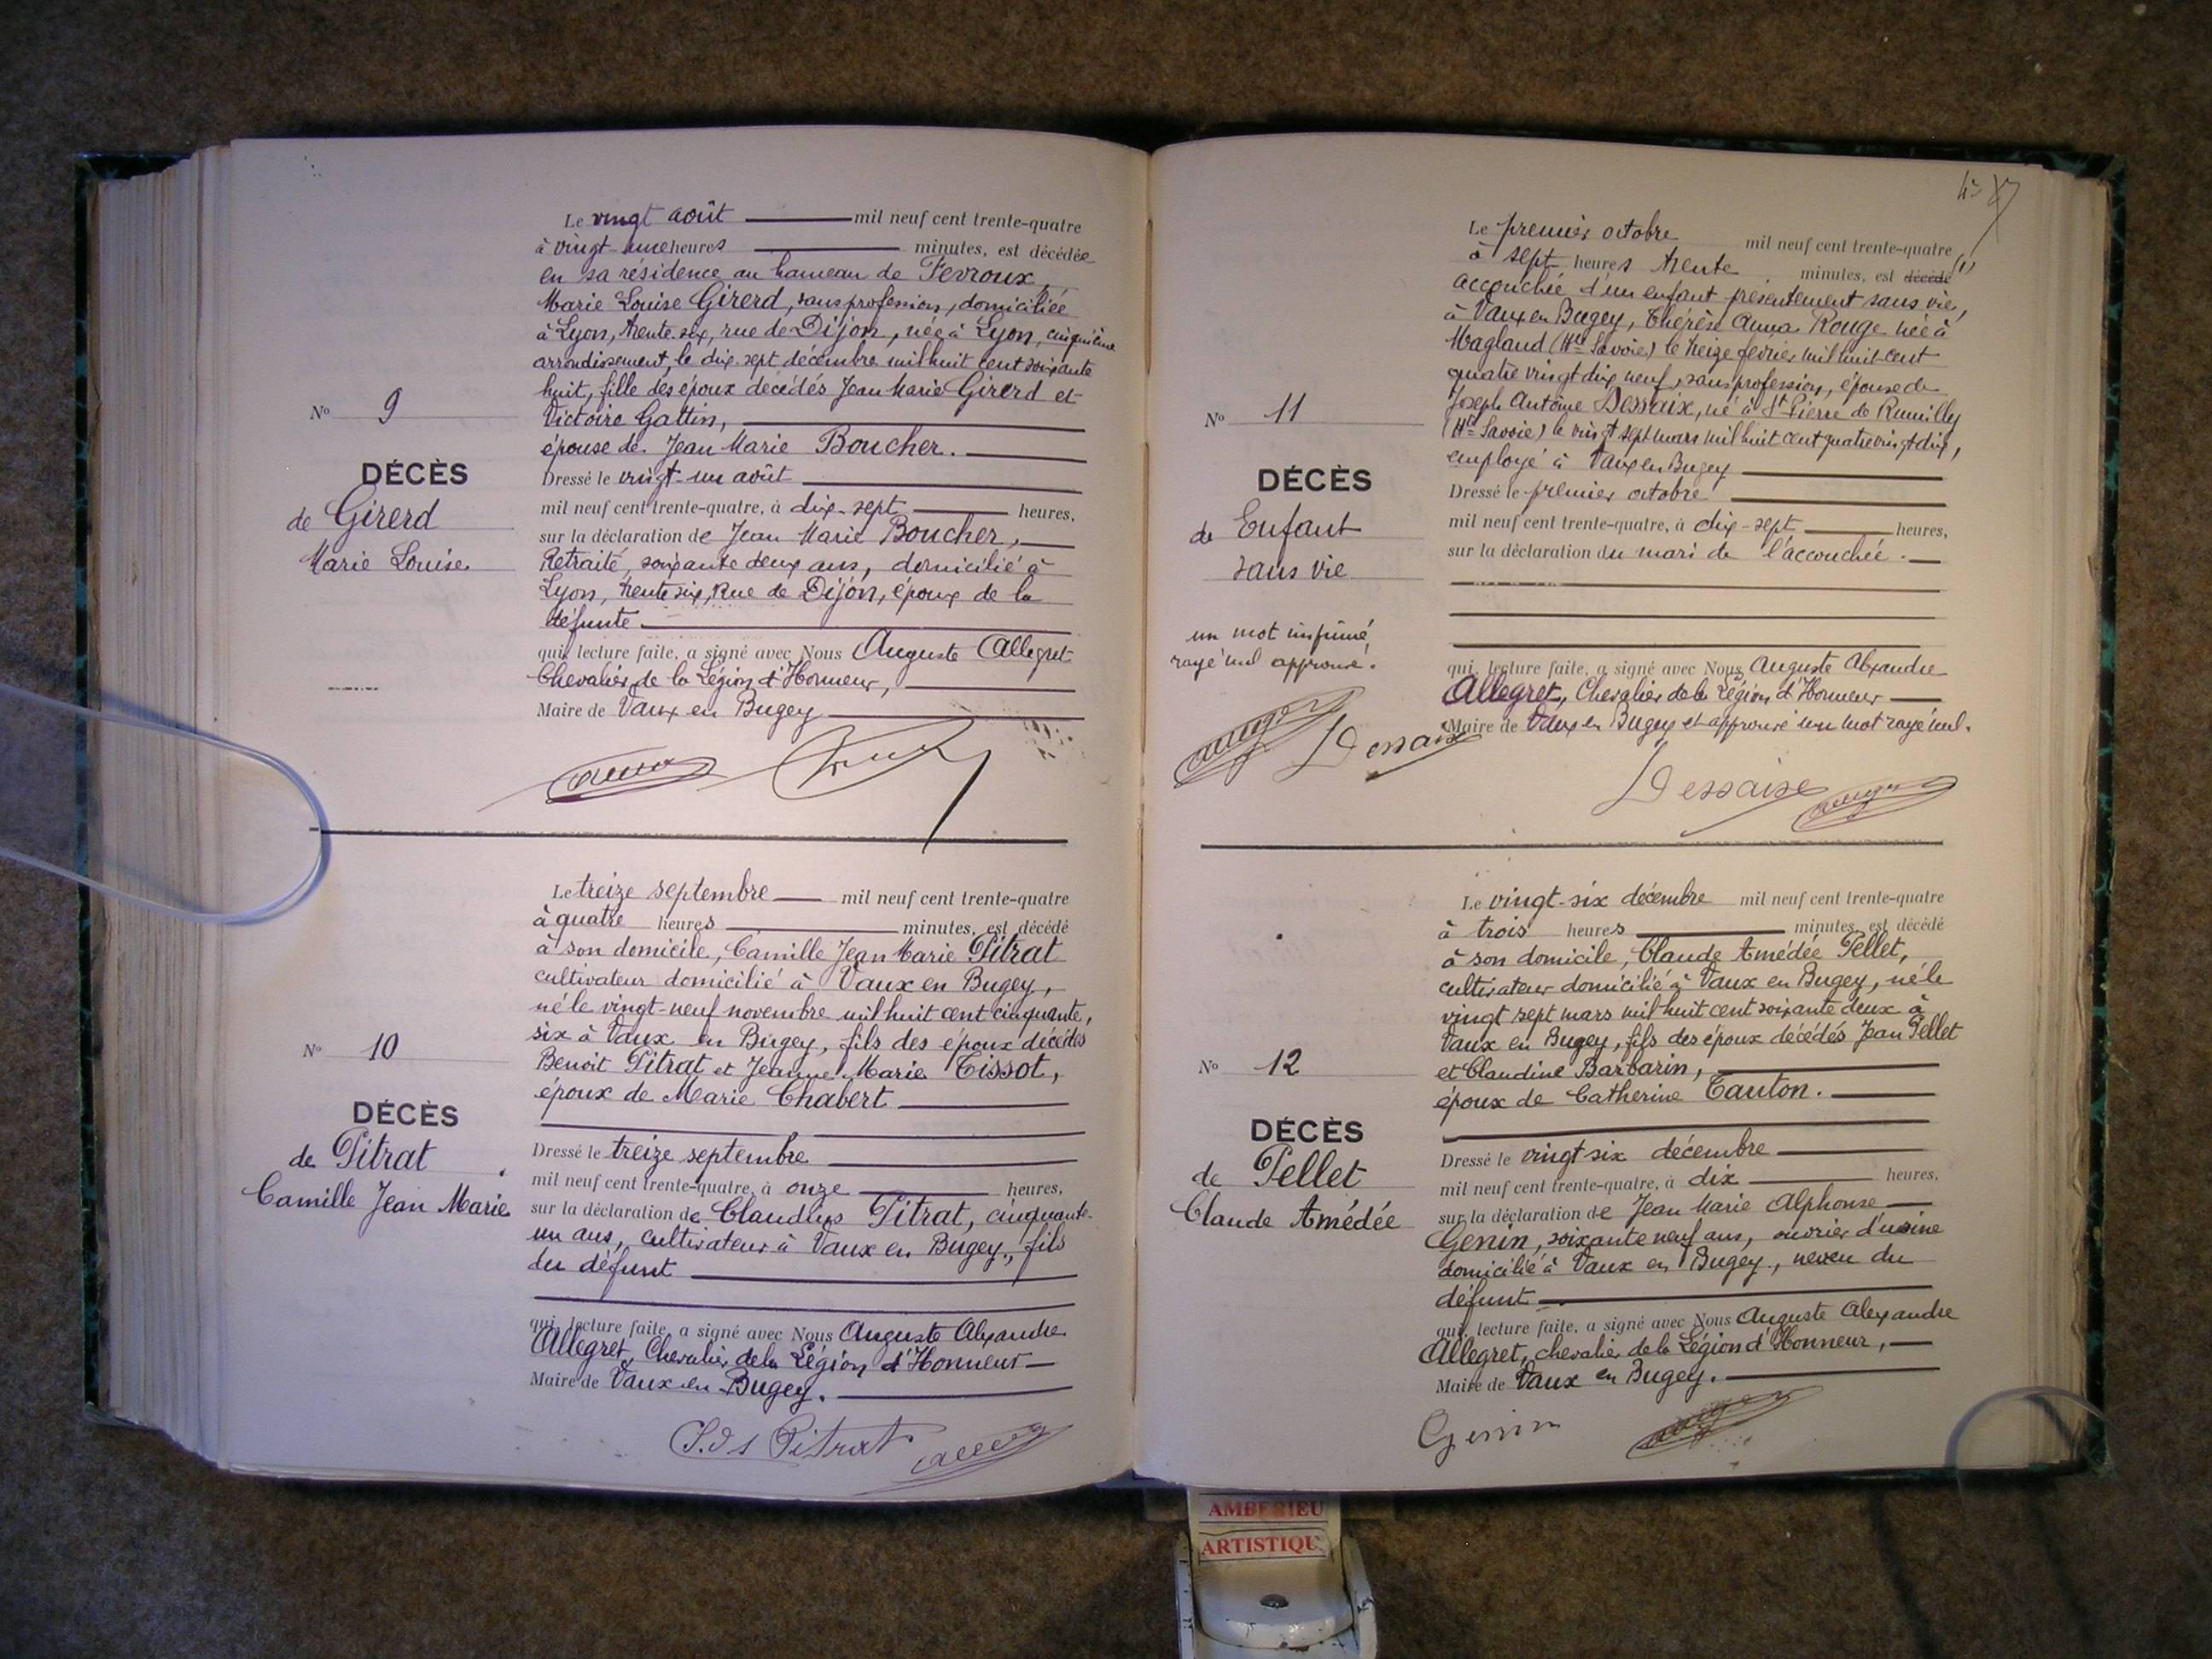 Le vingt août mil neuf cent trente-quatre
à vingt-une heures minutes, est décédée
en sa résidence au hameau de Fevroux,
Marie Louise Girerd, sans profession, domiciliée
à Lyon, trente-six, rue de Dijon, née à Lyon, cinquième
arrondissement, le dix-sept décembre mil huit cent soixante
huit, fille des époux décédés Jean Marie Girerd et
Victoire Gattin,
épouse de Jean Marie Boucher.
Nº 9
DÉCÈS
de Girerd
Marie Louise
Dressé le vingt-un août
mil neuf cent trente-quatre, à dix-sept heures,
sur la déclaration de Jean Marie Boucher,
Retraité, soixante deux ans, domicilié à
Lyon, trente six, Rue de Dijon, époux de la
défunte
qui, lecture faite, a signé avec Nous Auguste Allegret
Chevalier de la Légion d'Honneur,
Maire de Vaux en Bugey
Le treize septembre mil neuf cent trente-quatre
à quatre heures minutes, est décédé
à son domicile, Camille Jean Marie Pitrat
cultivateur domicilié à Vaux en Bugey,
né le vingt-neuf novembre mil huit cent cinquante,
six à Vaux en Bugey, fils des époux décédés
Benoit Pitrat et Jeanne Marie Tissot,
époux de Marie Chabert
Nº 10
DÉCÈS
de Pitrat
Camille Jean Marie
Dressé le treize septembre
mil neuf cent trente-quatre, à onze heures,
sur la déclaration de Claudius Pitrat, cinquante-
un ans, cultivateur à Vaux en Bugey, fils
du défunt
qui, lecture faite, a signé avec Nous Auguste Alexandre
Allegret, Chevalier de la Légion d'Honneur
Maire de Vaux en Bugey.
Pitrat
Le premier octobre mil neuf cent trente-quatre
à sept heures trente minutes, est décédé (1)
accouchée d'un enfant présentement sans vie,
à Vaux en Bugey, Thérèse Anna Rouge née à
Magland (Hte Savoie) le treize février mil huit cent
quatre vingt dix neuf, sans profession, épouse de
Joseph Antoine Dessaix, né à St Pierre de Rumilly
(Hte Savoie) le vingt sept mars mil huit cent quatre vingt dix,
employé à Vaux en Bugey
Nº 11
DÉCÈS
de Enfant
sans vie
un mot imprimé
rayé nul approuvé.
Dessaix
Dressé le premier octobre
mil neuf cent trente-quatre, à dix-sept heures,
sur la déclaration du mari de l'accouchée.
qui, lecture faite, a signé avec Nous Auguste Alexandre
Allegret, Chevalier de la Légion d'Honneur
Maire de Vaux en Bugey et approuvé un mot rayé nul.
Dessaix
Le vingt-six décembre mil neuf cent trente-quatre
à trois heures minutes, est décédé
à son domicile, Claude Amédée Pellet,
cultivateur domicilié à Vaux en Bugey, né le
vingt sept mars mil huit cent soixante deux à
Vaux en Bugey, fils des époux décédés Jean Pellet
et Claudine Barbarin,
époux de Catherine Tanton.
Nº 12
DÉCÈS
de Pellet
Claude Amédée
Dressé le vingt six décembre
mil neuf cent trente-quatre, à dix heures,
sur la déclaration de Jean Marie Alphonse
Genin, soixante neuf ans, ouvrier d'usine
domicilié à Vaux en Bugey, neveu du
défunt
qui, lecture faite, a signé avec Nous Auguste Alexandre
Allegret, chevalier de la Légion d'Honneur,
Maire de Vaux en Bugey.
Genin
AMBERIEU
ARTISTIQU